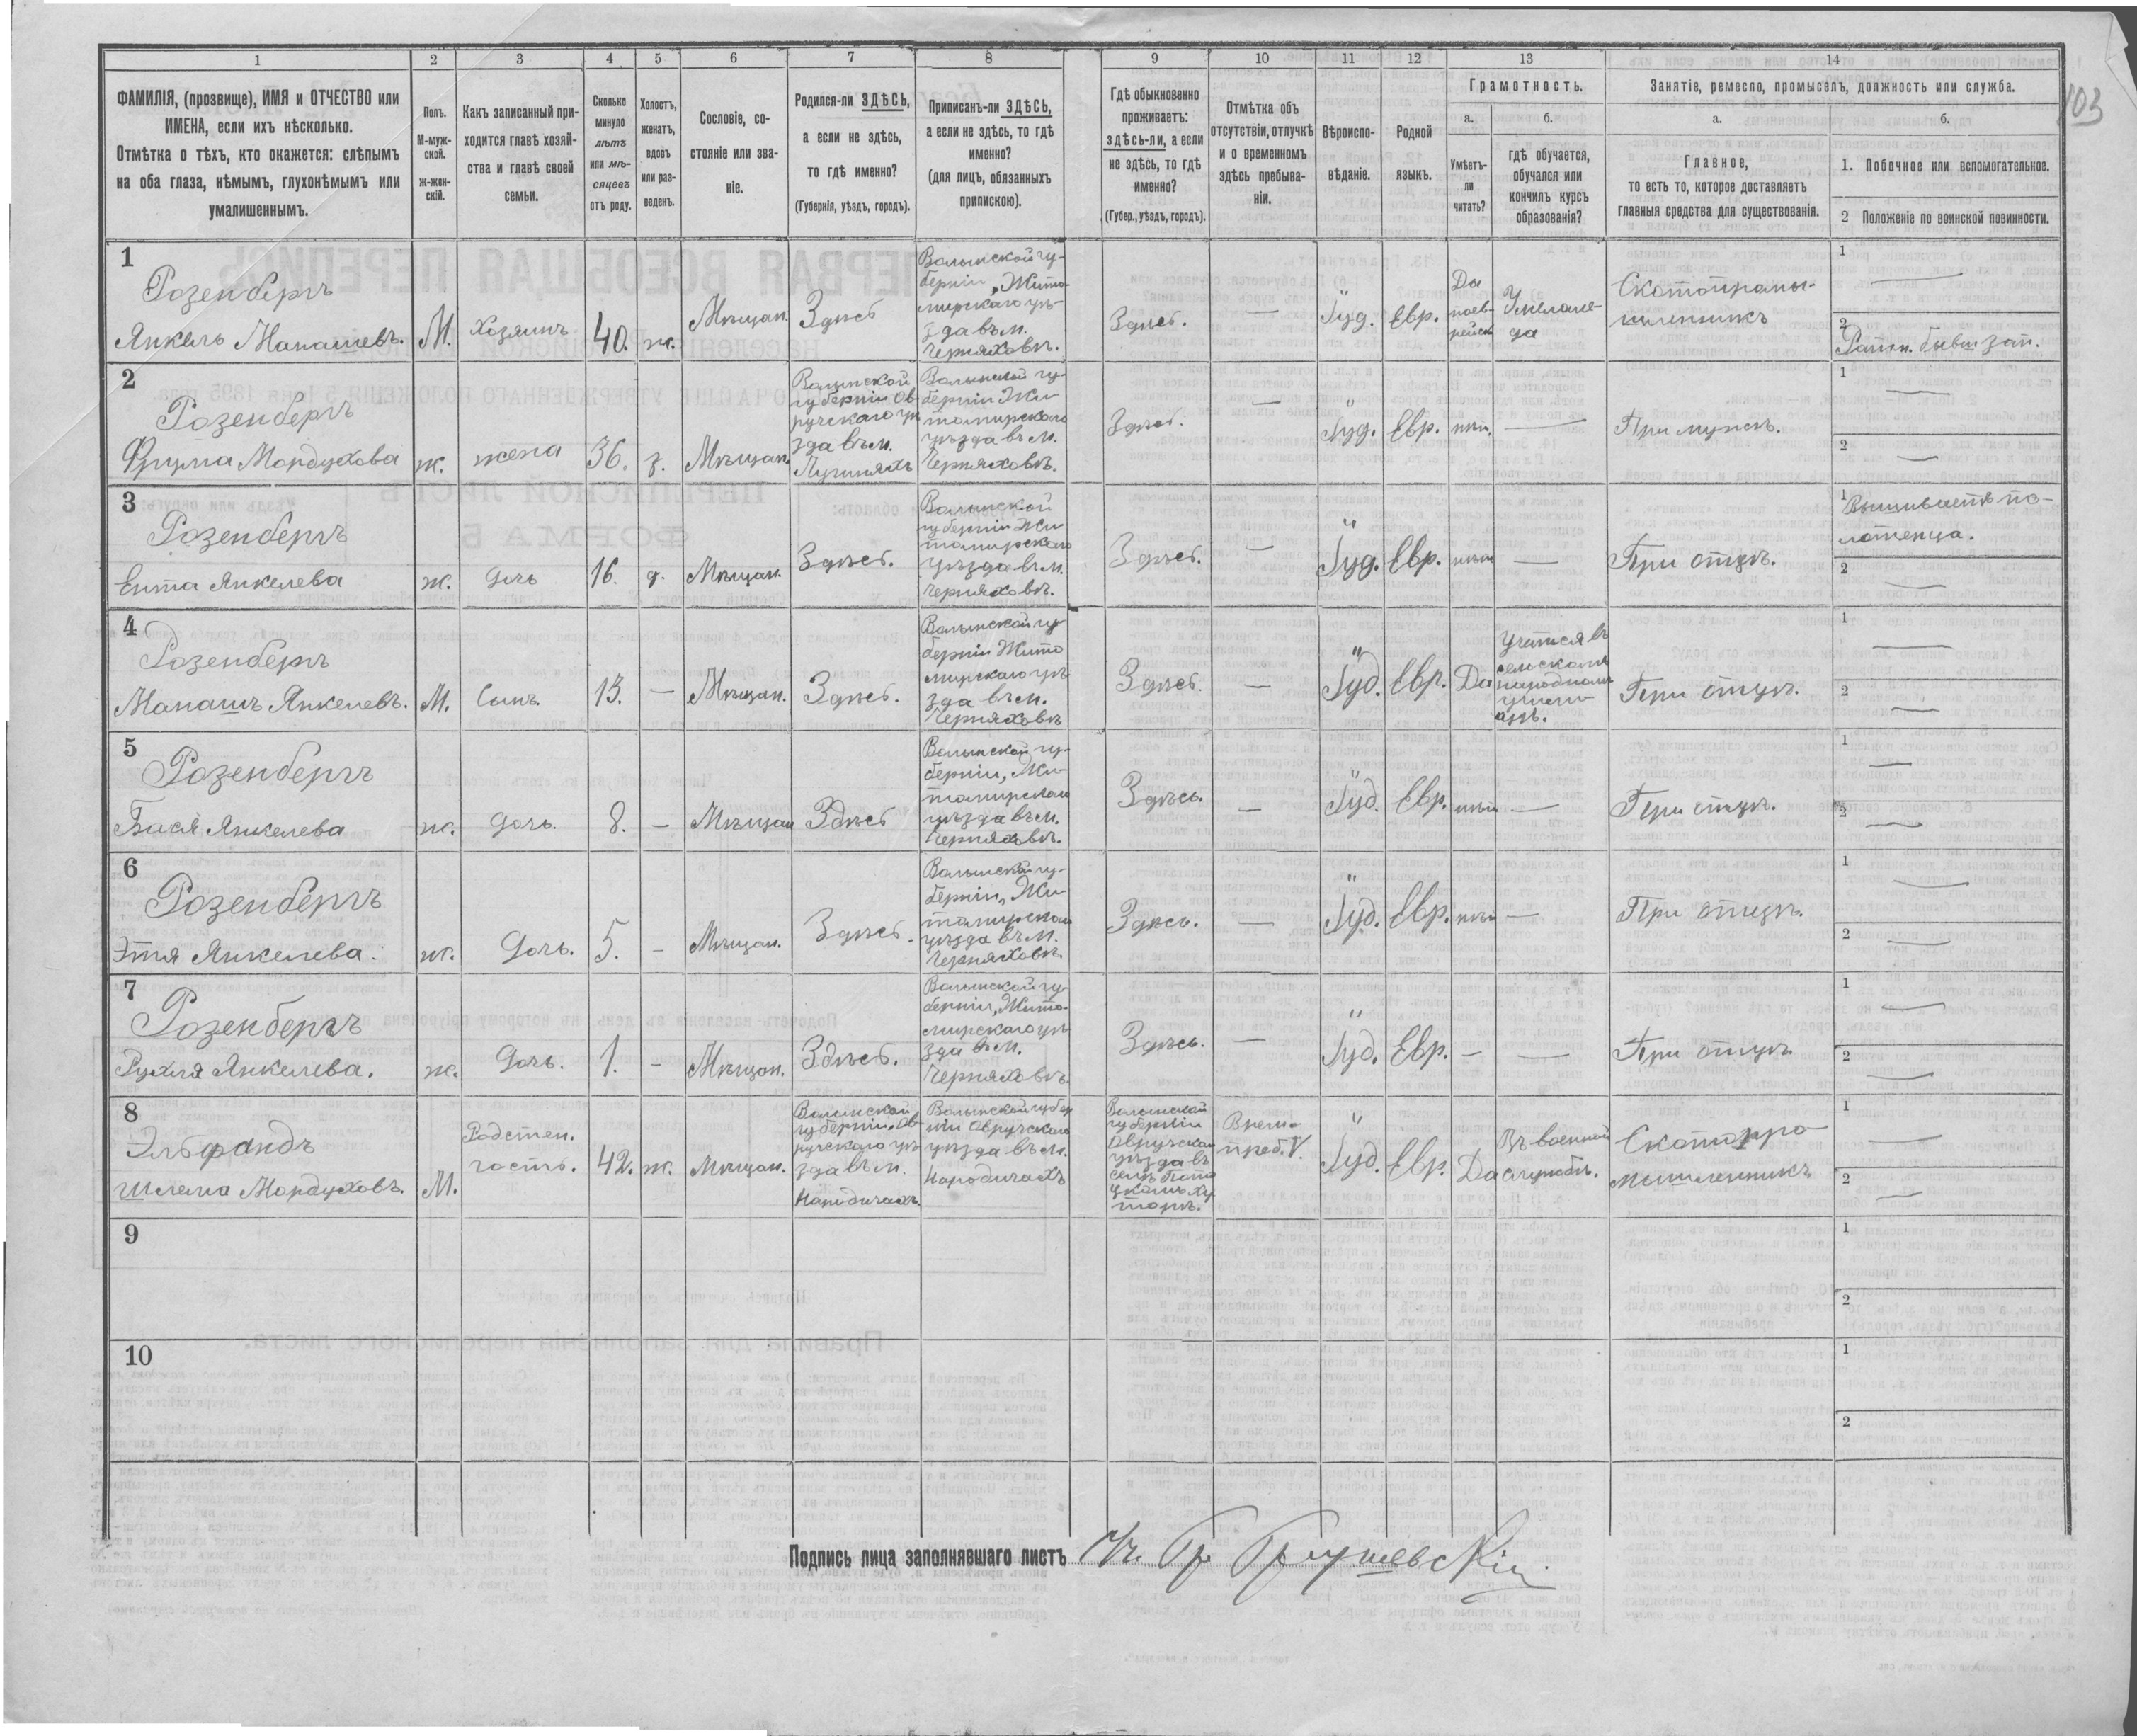 103
1 2 3 4 5 6 7 8 9 10 11 12 13 14
ФАМИЛІЯ, (прозвище), ИМЯ и ОТЧЕСТВО или
ИМЕНА, если ихъ нѣсколько.
Отмѣтка о тѣхъ, кто окажется: слѣпымъ
на оба глаза, нѣмымъ, глухонѣмымъ или
умалишеннымъ.
Полъ.
М-муж-
ской.
ж-жен-
скій.
Какъ записанный при-
ходится главѣ хозяй-
ства и главѣ своей
семьи.
Сколько
минуло
лѣтъ
или мѣ-
сяцевъ
отъ роду.
Холостъ,
женатъ,
вдовъ
или раз-
веденъ.
Сословіе, со-
стояніе или зва-
ніе.
Родился-ли ЗДѢСЬ,
а если не здѣсь,
то гдѣ именно?
(Губернія, уѣздъ, городъ).
Приписанъ-ли ЗДѢСЬ,
а если не здѣсь, то гдѣ
именно?
(для лицъ, обязанныхъ
припискою).
Гдѣ обыкновенно
проживаетъ:
здѣсь-ли, а если
не здѣсь, то гдѣ
именно?
(Губер., уѣздъ, городъ).
Отмѣтка объ
отсутствіи, отлучкѣ
и о временномъ
здѣсь пребыва-
ніи.
Вѣроиспо-
вѣданіе.
Родной
языкъ.
Грамотность.
а.
Умѣетъ-
ли
читать?
б.
гдѣ обучается,
обучался или
кончилъ курсъ
образованія?
Занятіе, ремесло, промыселъ, должность или служба.
а.
Главное,
то есть то, которое доставляетъ
главныя средства для существованія.
б.
1. Побочное или вспомогательное.
2 Положеніе по воинской повинности.
1
Розенбергъ
Янкель Манашевъ.
М.
Хозяинъ
40.
ж.
Мѣщан.
Здѣсь
Волынской гу-
берніи, Жито-
мирскаго уѣ-
зда въ м.
Черняховѣ.
Здѣсь.
—
Іуд.
Евр.
Да
поев-
рейски
У меламе-
да
Скотопромы-
шленникъ
1 —
2
Ратн. бывш зап.
2
Розенбергъ
Фрума Мордухова
ж.
жена
36.
з.
Мѣщан.
Волынской
губерніи Ов-
ручскаго уѣ
зда въ м.
Лугинахъ
Волынской гу-
берніи Жи-
томирскаго
уѣзда въ м.
Черняховѣ.
Здѣсь.
—
Іуд.
Евр.
нѣт.
—
При мужѣ.
1 —
2 —
3
Розенбергъ
Ента Янкелева
ж.
дочь
16.
д.
Мѣщан.
Здѣсь.
Волынской
губерніи Жи
томирскаго
уѣзда въ м.
Черняховѣ.
Здѣсь.
—
Іуд.
Евр.
нѣт
—
При отцѣ.
1 Вышиваетъ по-
лотенца.
2 —
4
Розенбергъ
Манашъ Янкелевъ.
М.
Сынъ.
13.
—
Мѣщан.
Здѣсь.
Волынской гу-
берніи Жито
мирскаго уѣ
зда въ м.
Черняховѣ
Здѣсь.
—
Іуд.
Евр.
Да
Учится въ
сельскомъ
народномъ
училищѣ.
При отцѣ.
1 —
2 —
5
Розенбергъ
Бася Янкелева
ж.
дочь.
8.
—
Мѣщан
Здѣсь
Волынской гу-
берніи, Жи-
томирскаго
уѣзда въ м.
Черняховѣ.
Здѣсь.
—
Іуд.
Евр.
нѣт
—
При отцѣ.
1 —
2 —
6
Розенбергъ
Этя Янкелева.
ж.
Дочь.
5.
—
Мѣщан.
Здѣсь.
Волынской гу-
берніи, Жи-
томирскаго
уѣзда въ м.
Черняховѣ.
Здѣсь.
—
Іуд.
Евр.
нѣт
—
При отцѣ.
1 —
2 —
7
Розенбергъ
Рухля Янкелева.
ж.
Дочь.
1.
—
Мѣщан.
Здѣсь.
Волынской гу-
берніи, Жито-
мирскаго уѣ
зда въ м.
Черняховѣ.
Здѣсь.
—
Іуд.
Евр.
—
—
При отцѣ
1 —
2 —
8
Эльфандъ
Шлема Мордуховъ.
М.
Родствен.
гость.
42.
ж.
Мѣщан.
Волынской
губерніи, Ов
ручскаго уѣ
зда въ м.
Народичахъ.
Волынской губер
ніи Овручскаго
уѣзда въ м.
Народичахъ
Волынской
губерніи
Овручскаго
уѣзда въ
хуторѣ.
Врем.
преб. V.
Іуд.
Евр.
Да
Въ военной
службѣ.
Скотопро
мышленникъ
1 —
2 —
9
1
2
10
1
2
Подпись лица заполнявшаго листъ